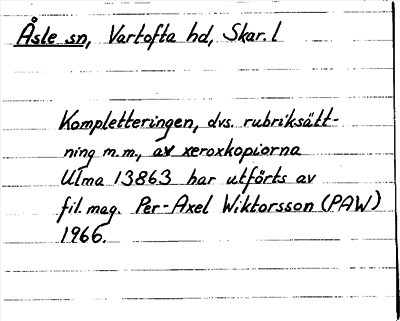 Åsle sn, Vartofta hd, Skar. l
Kompletteringen, dvs. rubriksätt-
ning m.m., av xeroxkopiorna
Ulma 13863 har utförts av
fil. mag. Per-Axel Wiktorsson (PAW)
1966.